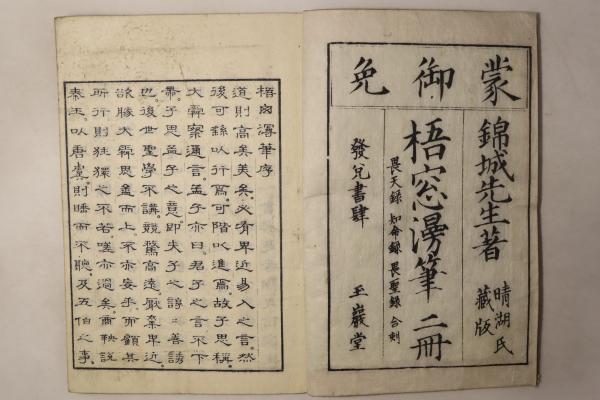 蒙御免
錦城先生著
晴湖氏
藏版
梧窓漫筆 二冊
畏天録 知命録 畏聖録 合刻
發兌書肆 玉巖堂
梧窗漫筆序
道則高矣美矣必有卑近易入之言然
後可繇以行焉可階以進焉故子思稱
大舜察邇言孟子亦曰君子之言不下
帶子思孟子之意即夫子之諄〻善誘
也後世聖學不講競騖高遠厭棄卑近
欲勝大舜思孟而上不亦妄乎而顧其
所行則狂猘之不若嗟亦過矣商鞅説
秦王以唐虞則睡而不聽及五伯之事